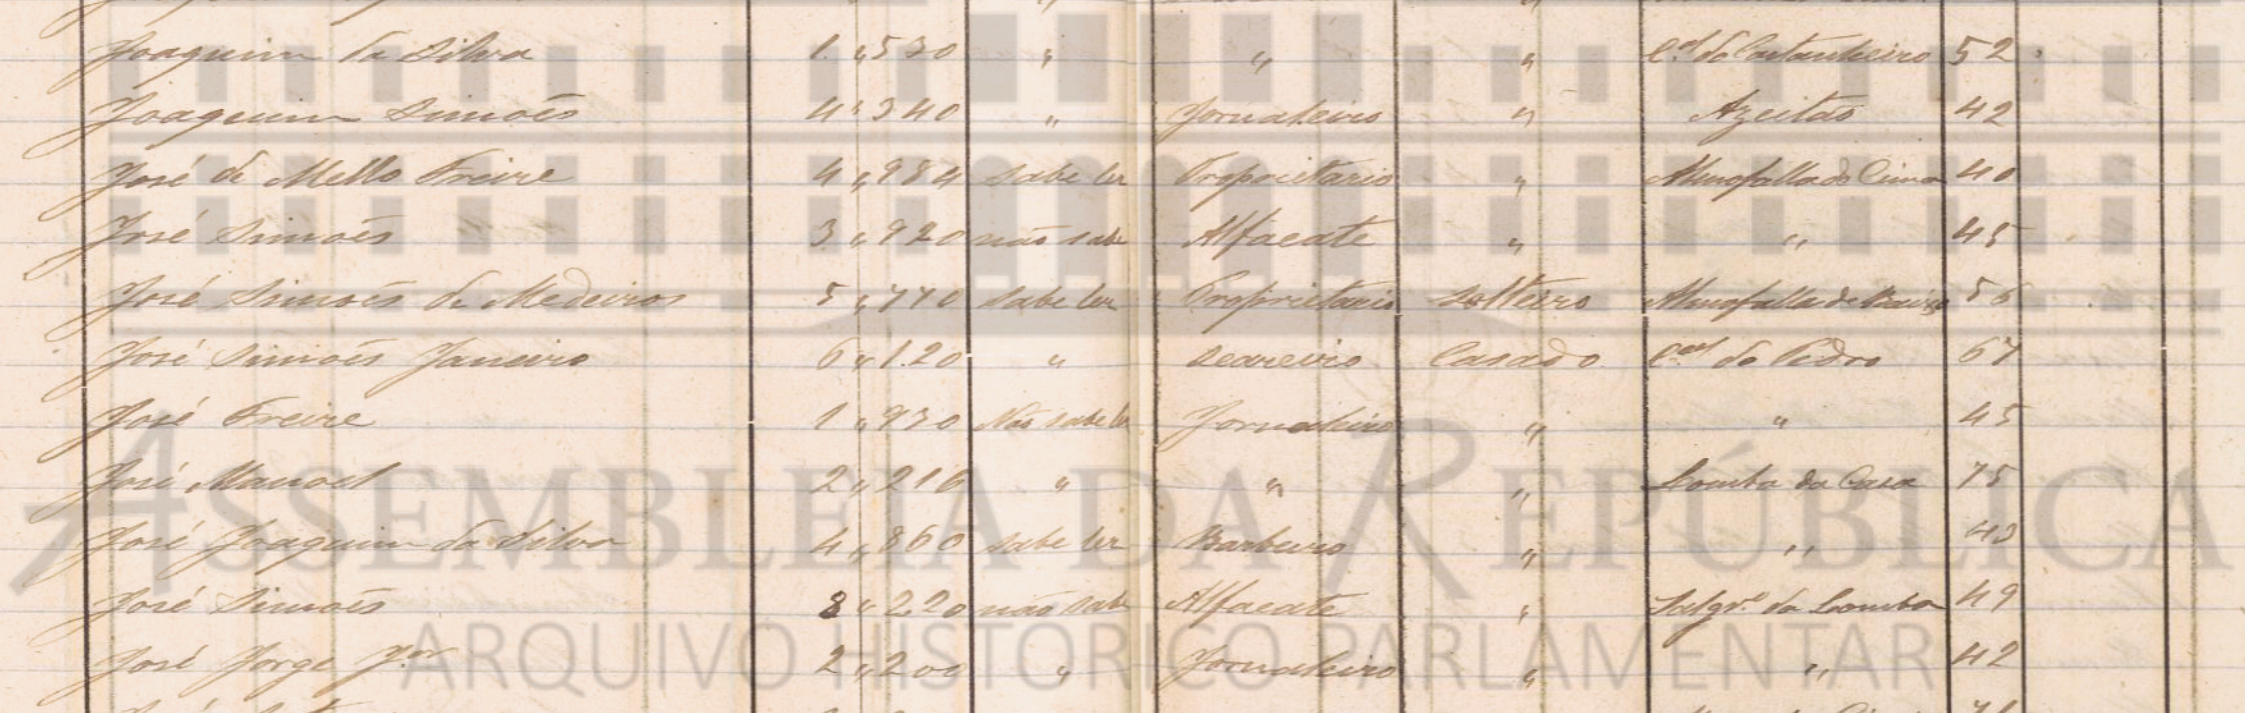 Joaquim da Silva 1 „ 530 „ „ „ C.al do Castanheiro 52
Joaquim Simões 4 „ 340 „ Jornaleiro „ Azeitão 42
José de Mello Freire 4 „ 984 Sabe ler Proprietario „ Almofalla de Cima 40
José Simões 3 „ 920 não sabe Alfaeate „ „ 45
José Simões de Medeiros 5 „ 770 Sabe ler Proprietario Solteiro Almofalla de Baixo 56
José Simões Janeiro 6 „ 120 „ Seareiro Casado C.al do Pedro 67
José Freire 1 „ 930 Não sabe ler Jornaleiro „ „ 45
José Manoel 2 „ 216 „ „ „ Lomba da Casa 75
José Joaquim da Silva 4 „ 860 sabe ler Barbeiro „ „ 43
José Simões 8 „ 220 não sabe Alfaeate „ Salgr.o da Lomba 49
José Jorge J.or 2 „ 200 „ Jornaleiro „ „ 42
ASSEMBLEIA DA REPÚBLICA
ARQUIVO HISTÓRICO PARLAMENTAR